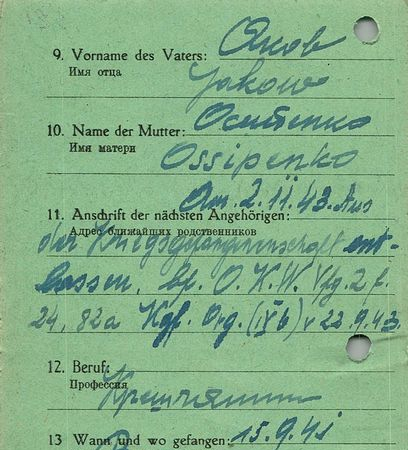 9. Vorname des Vaters: Яков
Имя отца
Jakow
10. Name der Mutter: Осипенко
Имя матери
Ossipenko
Am. 2.11.43. Aus
11. Anschrift der nächsten Angehörigen:
Адрес ближайших родственников
der Kriegsgefangenschaft ent-
lassen, O.K.W. Vfg. 2 f.
24, 82a Kgf. Org. (IVb) v 22.9.43.
12. Beruf:
Профессия
13 Wann und wo gefangen: 15.9.41